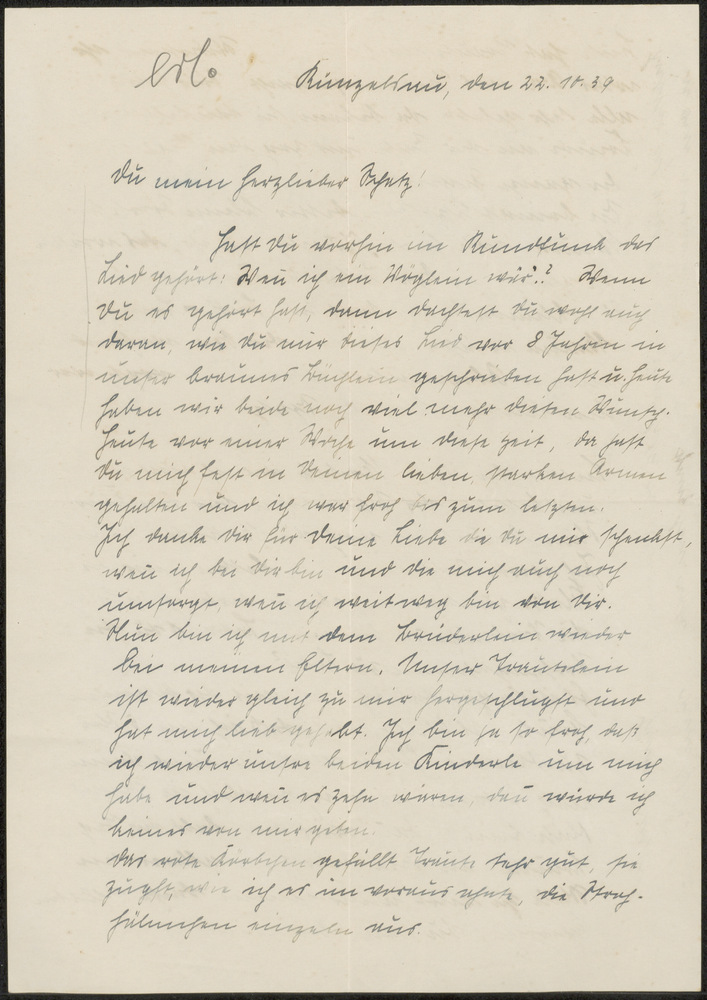 erl.
Künzelsau, den 22. 10. 39
Du mein herzlieber Schatz!
Hast Du vorhin im Rundfunk das
Lied gehört: Wenn ich ein Vöglein wär'.? Wenn
Du es gehört hast, dann dachtest Du wohl auch
daran, wie Du mir dieses Lied vor 8 Jahren in
unser braunes Büchlein geschrieben hast u. heute
haben wir beide noch viel mehr diesen Wunsch.
Heute vor einer Woche um diese Zeit, da hast
Du mich fest in Deinen lieben, starken Armen
gehalten und ich war froh bis zum letzten.
Ich danke Dir für Deine Liebe die Du mir schenkst,
wenn ich bei Dir bin und die mich auch noch
umsorgt, wenn ich weit weg bin von Dir.
Nun bin ich mit dem Brüderlein wieder
bei meinen Eltern. Unser Trautelein
ist wieder gleich zu mir hergeschlupft und
hat mich lieb gehabt. Ich bin ja so froh, daß
ich wieder unsre beiden Kinderle um mich
habe und wenn es zehn wären, dann würde ich
keines von mir geben.
Das rote Körbchen gefällt Traute sehr gut, sie
zupft, wie ich es im voraus ahnte, die Stroh-
hälmchen einzeln aus.